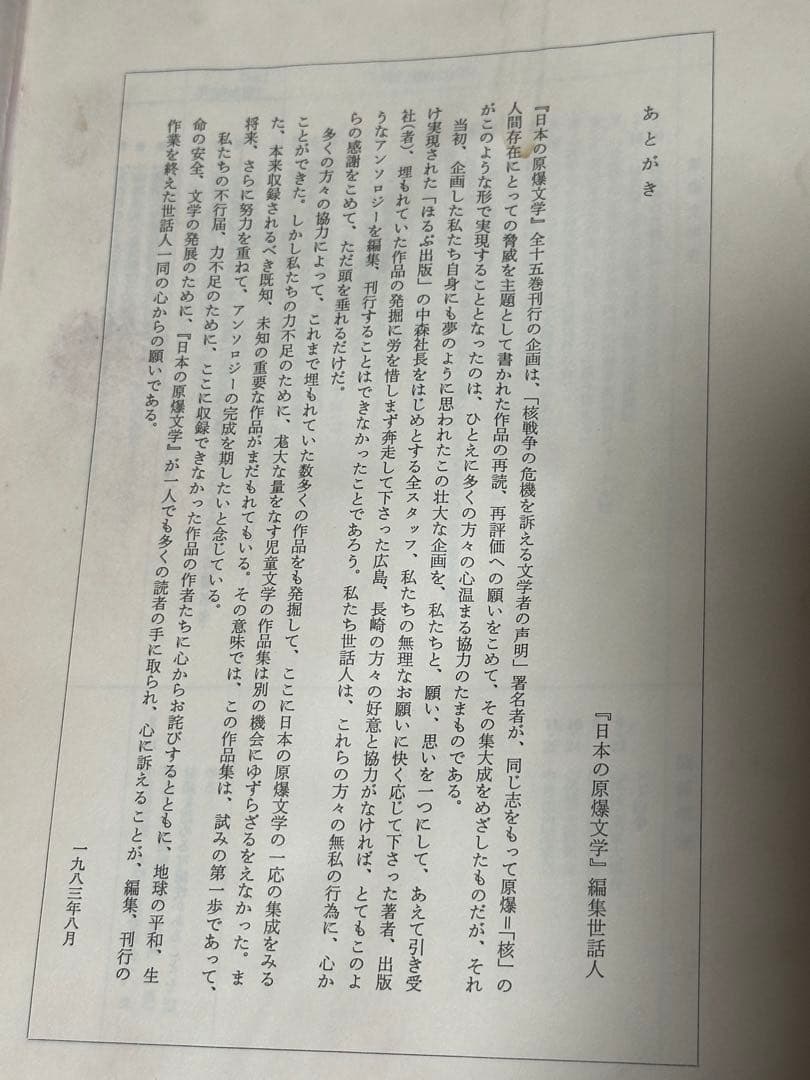 あとがき
『日本の原爆文学』編集世話人
『日本の原爆文学』全十五巻刊行の企画は、「核戦争の危機を訴える文学者の声明」署名者が、同じ志をもって原爆＝「核」の
人間存在にとっての脅威を主題として書かれた作品の再読、再評価への願いをこめて、その集大成をめざしたものだが、それ
がこのような形で実現することとなったのは、ひとえに多くの方々の心温まる協力のたまものである。
当初、企画した私たち自身にも夢のように思われたこの壮大な企画を、私たちと、願い、思いを一つにして、あえて引き受
け実現された「ほるぷ出版」の中森社長をはじめとする全スタッフ、私たちの無理なお願いに快く応じて下さった著者、出版
社（者）、埋もれていた作品の発掘に労を惜しまず奔走して下さった広島、長崎の方々の好意と協力がなければ、とてもこのよ
うなアンソロジーを編集、刊行することはできなかったことであろう。私たち世話人は、これらの方々の無私の行為に、心か
らの感謝をこめて、ただ頭を垂れるだけだ。
多くの方々の協力によって、これまで埋もれていた数多くの作品をも発掘して、ここに日本の原爆文学の一応の集成をみる
ことができた。しかし私たちの力不足のために、尨大な量をなす児童文学の作品集は別の機会にゆずらざるをえなかった。ま
た、本来収録されるべき既知、未知の重要な作品がまだもれてもいる。その意味では、この作品集は、試みの第一歩であって、
将来、さらに努力を重ねて、アンソロジーの完成を期したいと念じている。
私たちの不行届、力不足のために、ここに収録できなかった作品の作者たちに心からお詫びするとともに、地球の平和、生
命の安全、文学の発展のために、『日本の原爆文学』が一人でも多くの読者の手に取られ、心に訴えることが、編集、刊行の
作業を終えた世話人一同の心からの願いである。
一九八三年八月